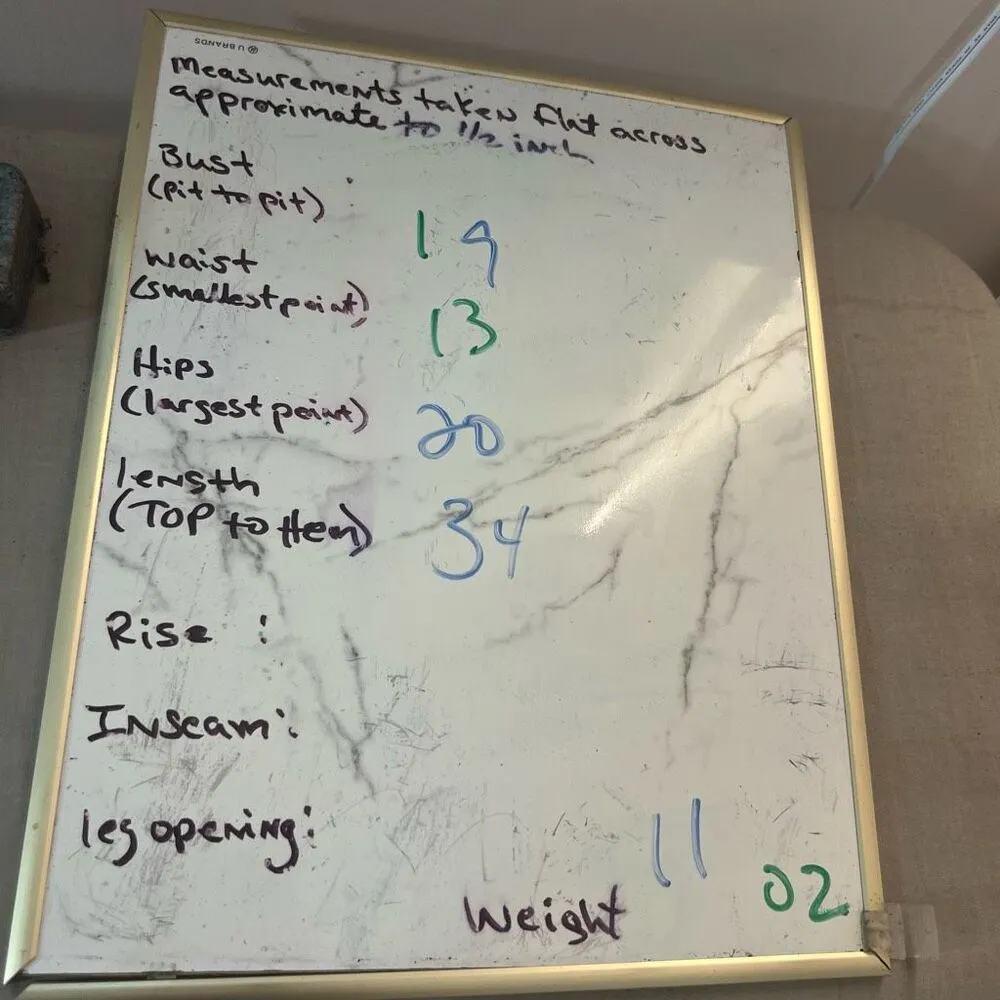 U BRANDS
Measurements taken flat across
approximate to 1/2 inch
Bust
(pit to pit)
19
Waist
(smallest point)
13
Hips
(largest point)
20
length
(TOP to Hem)
34
Rise :
INseam:
leg opening:
11
Weight
02